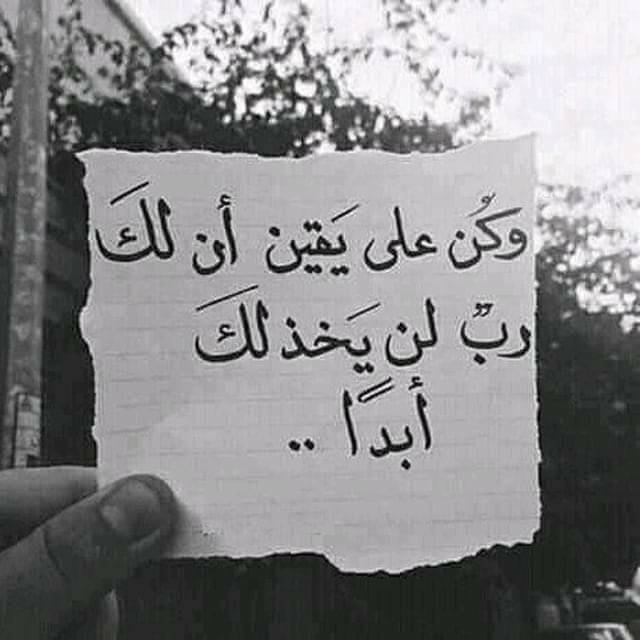 وكُن على يَقين أن لكَ
ربٌ لن يَخذلكَ
أبدًا ..